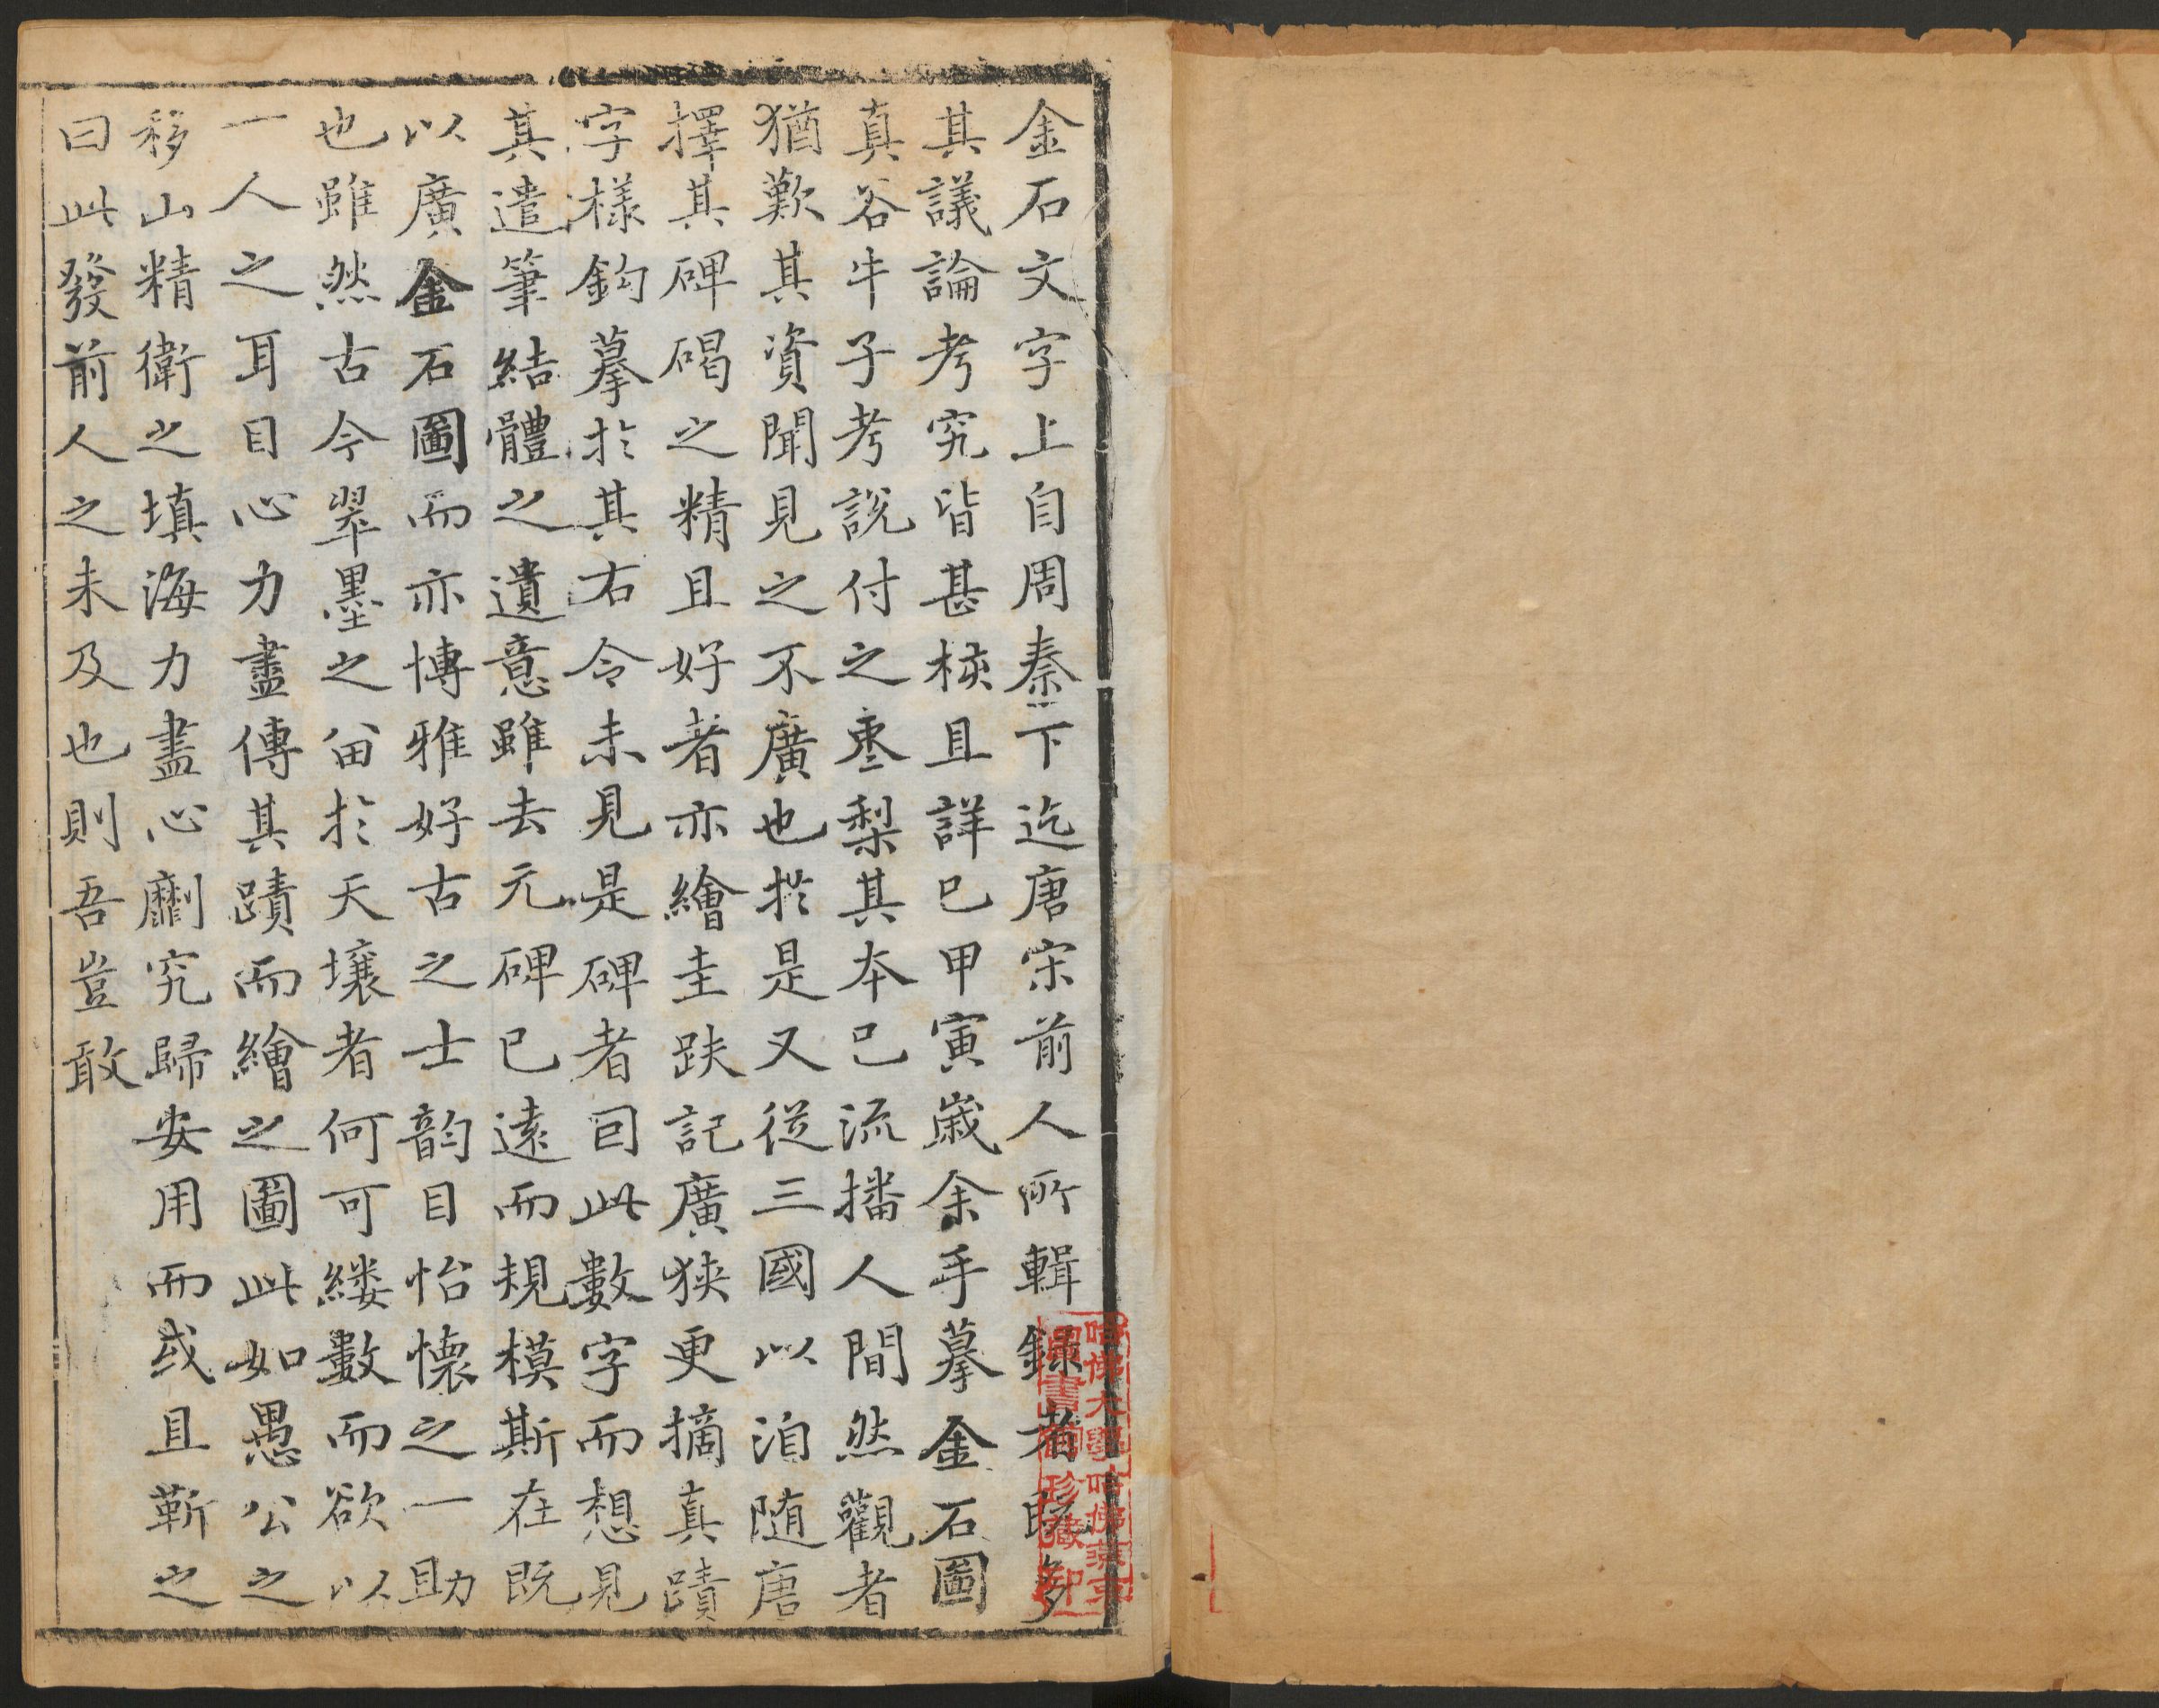 金石文字上自周秦下迄唐宋前人所輯録者既多
其議論考究皆甚核且詳已甲寅歲余手摹金石圖
真谷牛子考說付之棗梨其本已流播人間然觀者
猶歎其資聞見之不廣也扵是又從三國以洎隋唐
擇其碑碣之精且好者亦繪圭趺記廣狹更摘真蹟
字樣鈎摹扵其右令未見是碑者囙此數字而想見
其遣筆結體之遺意雖去元碑已遠而規模斯在旣
以廣金石圖而亦博雅好古之士韵目怡懷之一助
也雖然古今翠墨之留扵天壤者何可縷數而欲以
一人之耳目心力盡傳其蹟而繪之圖此如愚公之
移山精衛之填海力盡心劘究歸安用而或且蘄之
曰此發前人之未及也則吾豈敢
哈佛大學哈佛燕京
圖書館珍藏印